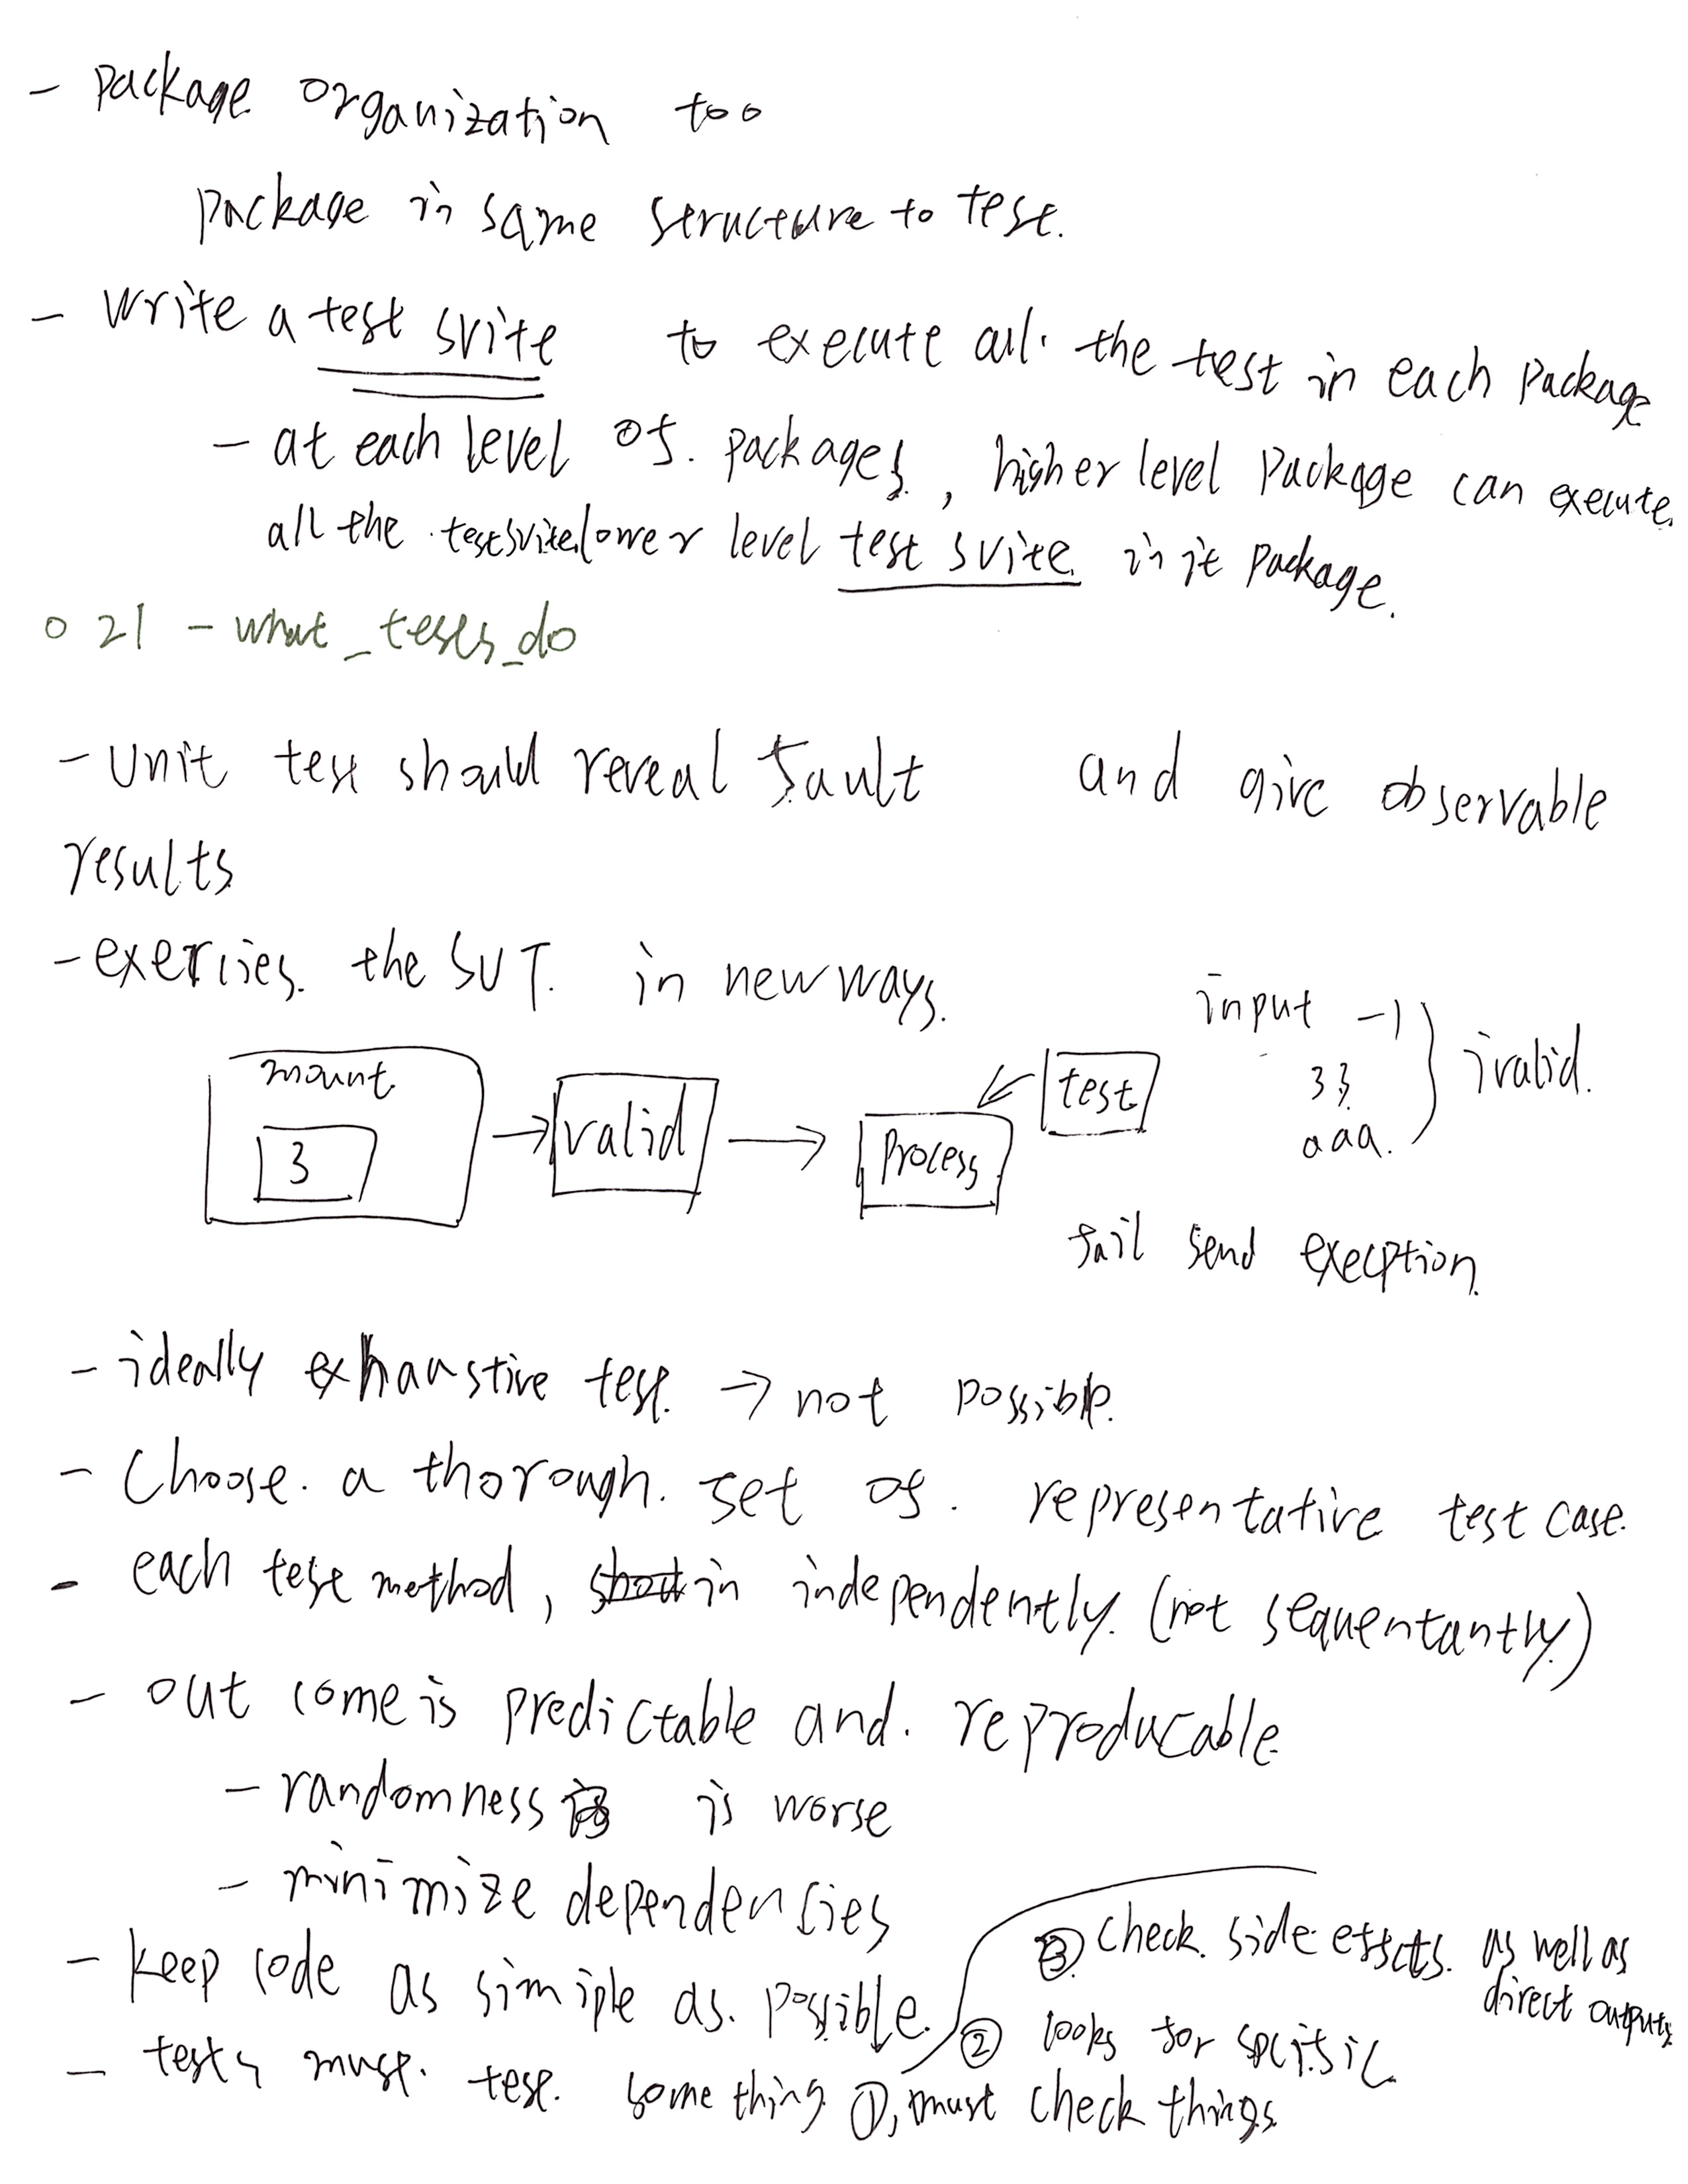 - package organization too
package in same structure to test.
- write a test suite to execute all the test in each package
- at each level of packages, higher level package can execute
all the testsuite lower level test suite in it package.
o 21 - what_tests_do
- Unit test should reveal fault and give observable
results
- exercises the SUT. in new ways.
input -1
33
aaa.
ivalid.
mount
3
valid
process
test
fail send execption
- ideally exhaustive test. → not possible.
- Choose a thorough set of representative test case.
- each test method, in independently. (not sequentantly)
- out come is predictable and reproducable
- randomness is worse
- minimize dependencies
- keep code as simiple as possible.
- tests must test something ①, must check things
② looks for spcific
③ check side effects as well as
direct outputs